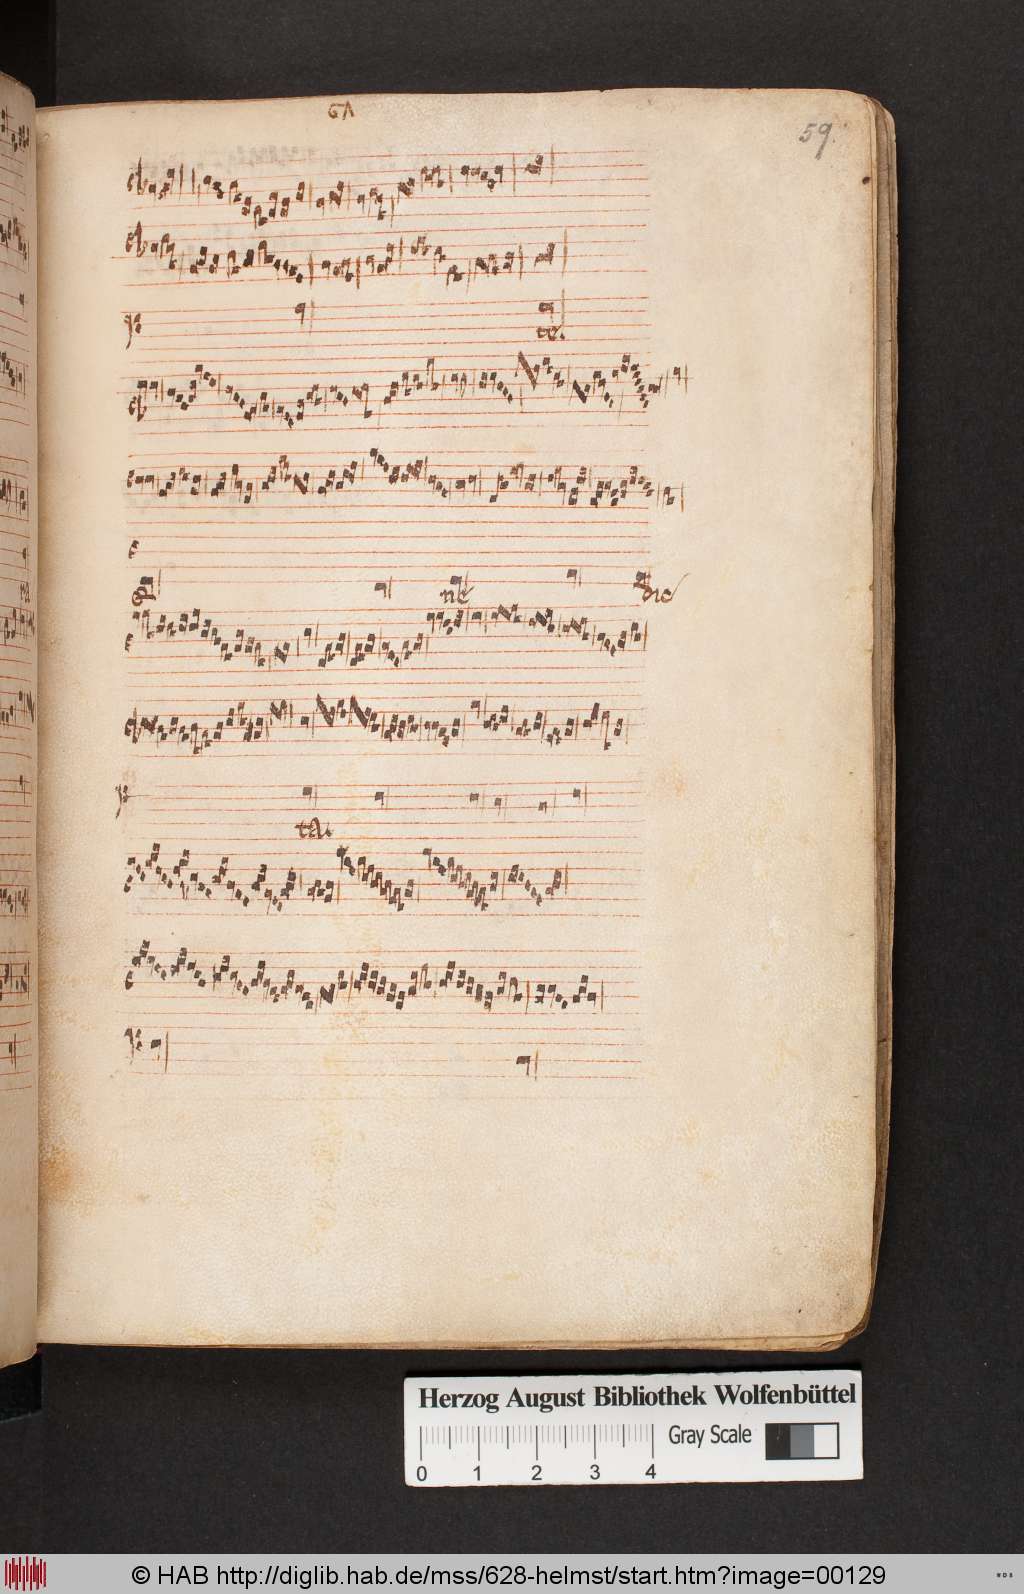 59
te.
Be ne dic
ta.
Herzog August Bibliothek Wolfenbüttel
Gray Scale
0 1 2 3 4
© HAB http://diglib.hab.de/mss/628-helmst/start.htm?image=00129